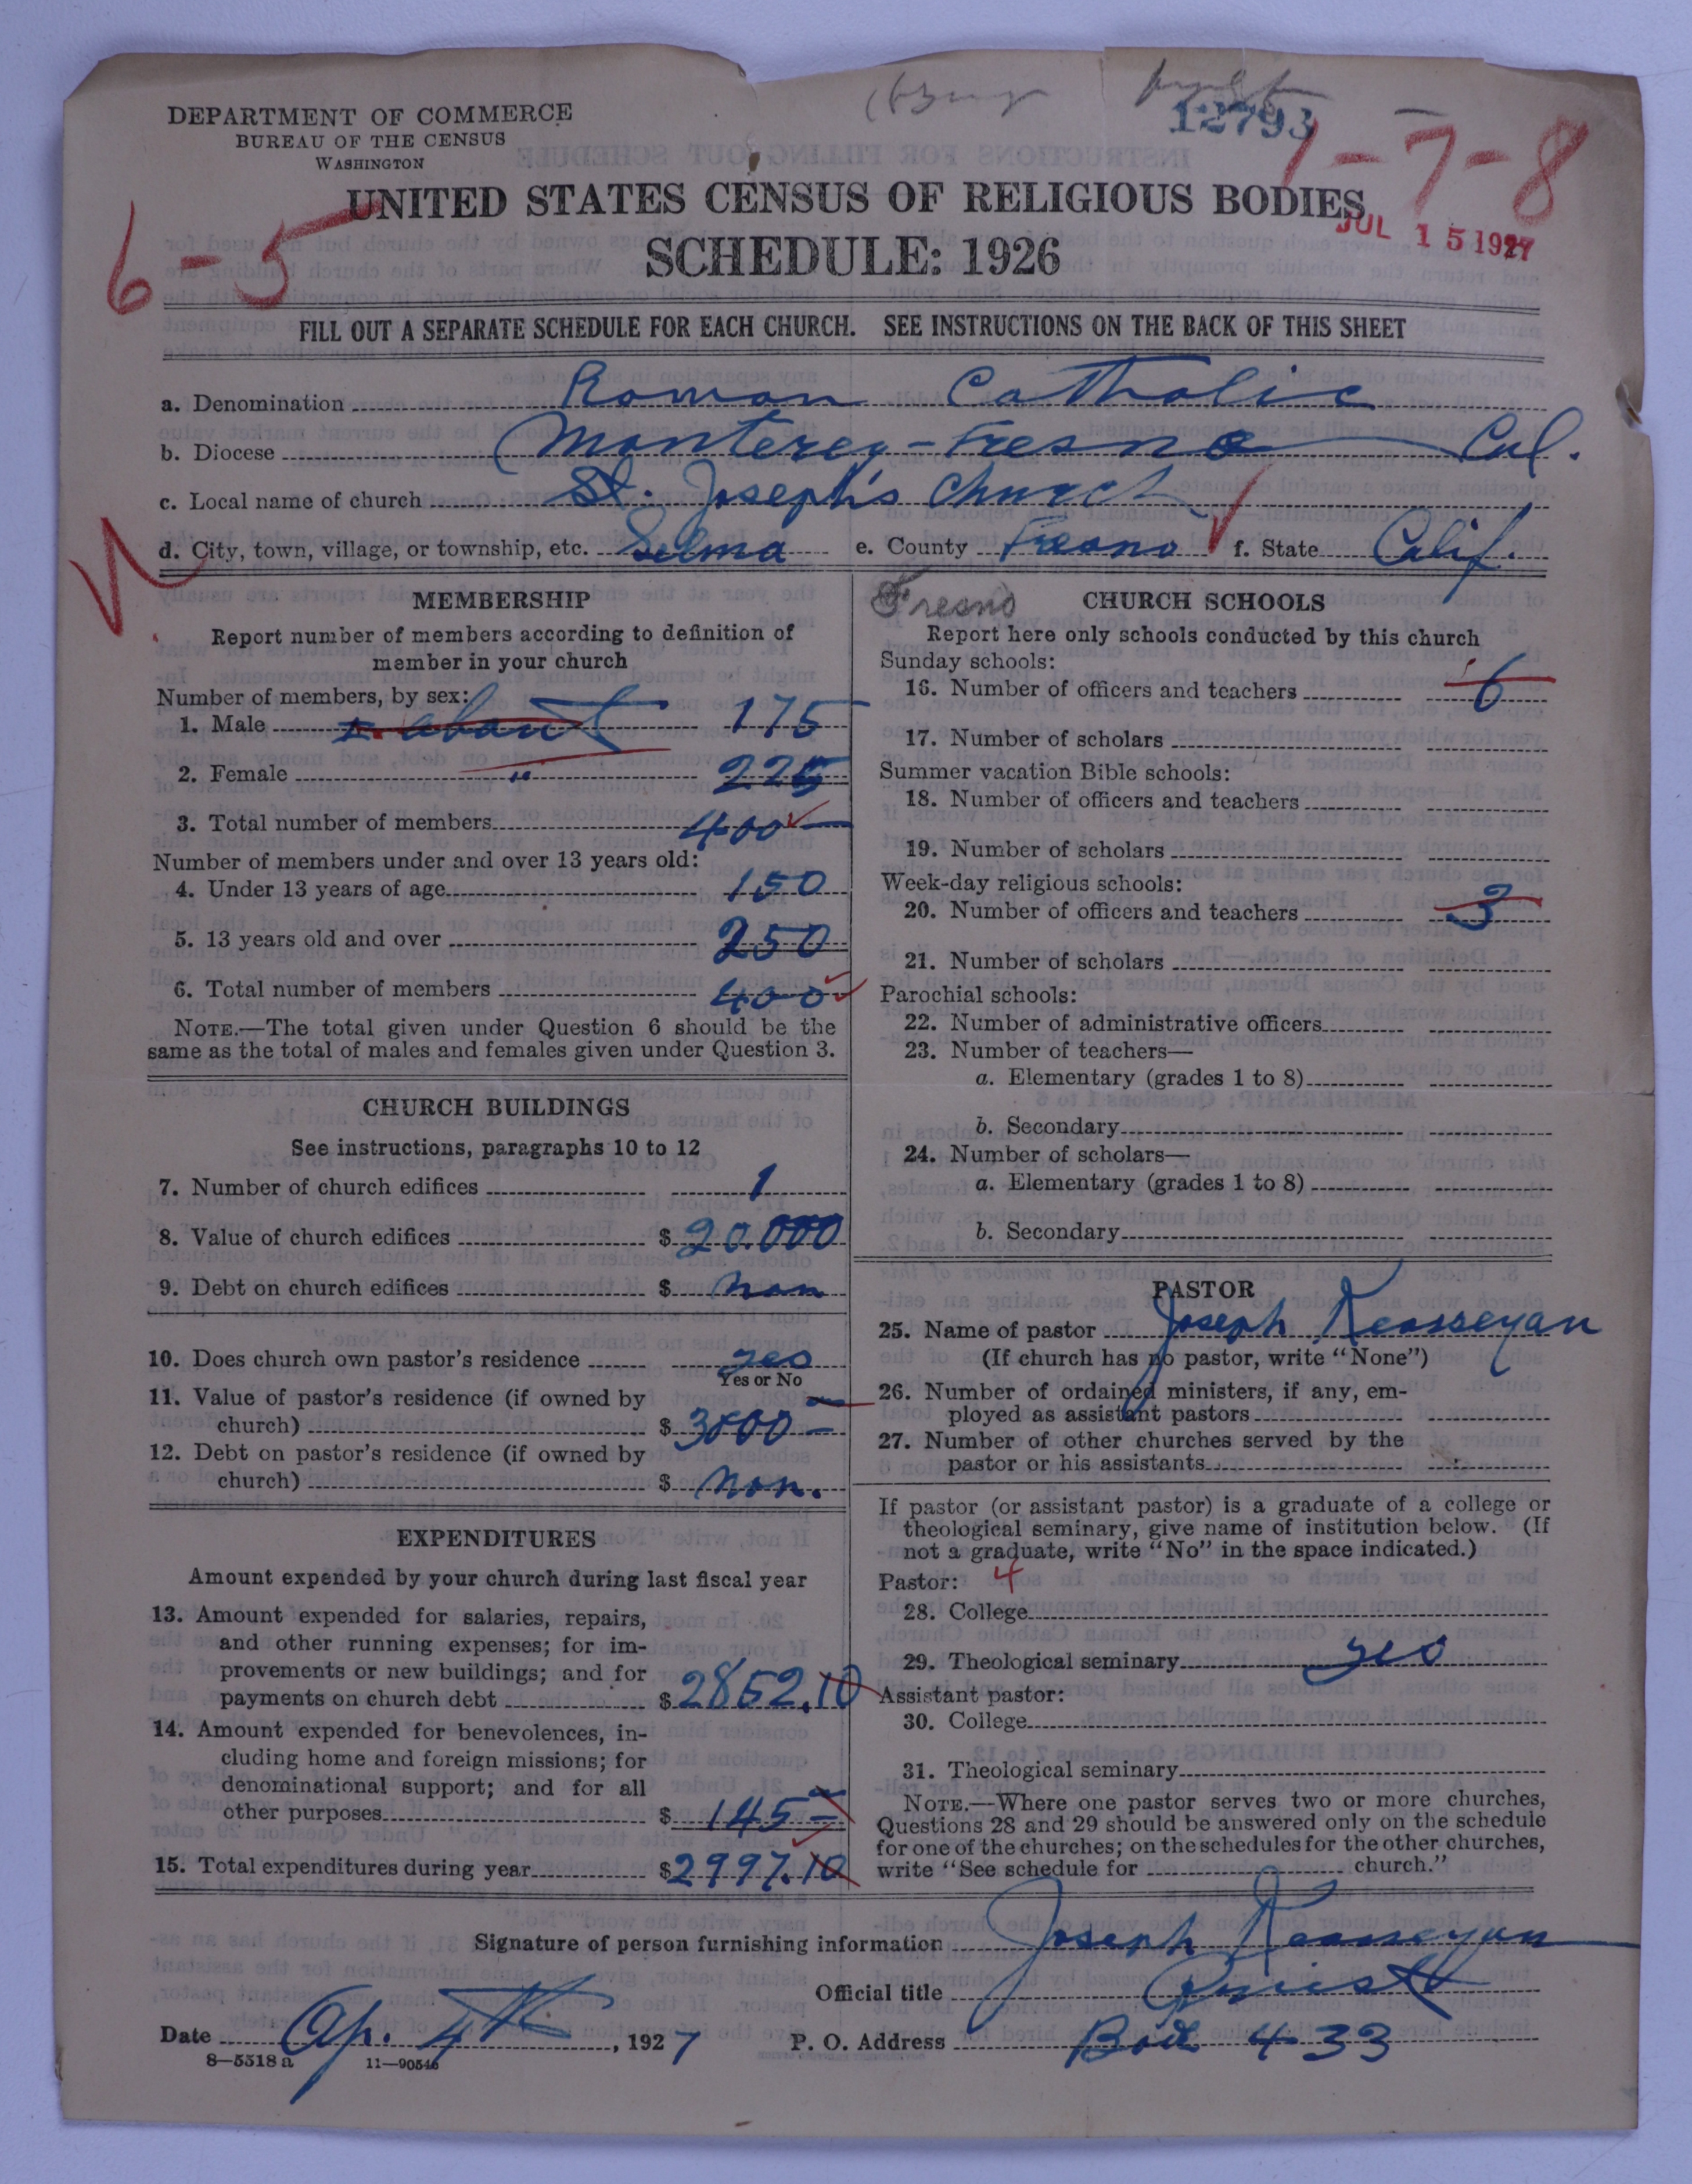 DEPARTMENT OF COMMERCE
BUREAU OF THE CENSUS
WASHINGTON
12793
1-7-8
UNITED STATES CENSUS OF RELIGIOUS BODIES
JUL 15 1927
6-5
SCHEDULE: 1926
FILL OUT A SEPARATE SCHEDULE FOR EACH CHURCH. SEE INSTRUCTIONS ON THE BACK OF THIS SHEET
a. Denomination Roman Catholic
b. Diocese Monterey-Fresno Cal.
c. Local name of church St. Joseph's Church
d. City, town, village, or township, etc. Selma e. County Fresno f. State Calif.
MEMBERSHIP
Report number of members according to definition of
member in your church
Number of members, by sex:
1. Male about 175
2. Female " 225
3. Total number of members 400
Number of members under and over 13 years old:
4. Under 13 years of age 150
5. 13 years old and over 250
6. Total number of members 400
NOTE.—The total given under Question 6 should be the
same as the total of males and females given under Question 3.
CHURCH BUILDINGS
See instructions, paragraphs 10 to 12
7. Number of church edifices 1
8. Value of church edifices $ 20.000
9. Debt on church edifices $ non
10. Does church own pastor's residence yes
Yes or No
11. Value of pastor's residence (if owned by
church) $ 3000-
12. Debt on pastor's residence (if owned by
church) $ non.
EXPENDITURES
Amount expended by your church during last fiscal year
13. Amount expended for salaries, repairs,
and other running expenses; for im-
provements or new buildings; and for
payments on church debt $ 2852.10
14. Amount expended for benevolences, in-
cluding home and foreign missions; for
denominational support; and for all
other purposes $ 145-
15. Total expenditures during year $ 2997.10
Fresno
CHURCH SCHOOLS
Report here only schools conducted by this church
Sunday schools:
16. Number of officers and teachers 6
17. Number of scholars
Summer vacation Bible schools:
18. Number of officers and teachers
19. Number of scholars
Week-day religious schools:
20. Number of officers and teachers 3
21. Number of scholars
Parochial schools:
22. Number of administrative officers
23. Number of teachers—
a. Elementary (grades 1 to 8)
b. Secondary
24. Number of scholars—
a. Elementary (grades 1 to 8)
b. Secondary
PASTOR
25. Name of pastor Joseph Keosseyan
(If church has no pastor, write "None")
26. Number of ordained ministers, if any, em-
ployed as assistant pastors
27. Number of other churches served by the
pastor or his assistants
If pastor (or assistant pastor) is a graduate of a college or
theological seminary, give name of institution below. (If
not a graduate, write "No" in the space indicated.)
Pastor: 4
28. College
29. Theological seminary yes
Assistant pastor:
30. College
31. Theological seminary
NOTE.—Where one pastor serves two or more churches,
Questions 28 and 29 should be answered only on the schedule
for one of the churches; on the schedules for the other churches,
write "See schedule for church."
Signature of person furnishing information Joseph Keosseyan
Official title Priest
Date Ap. 4th, 1927 P. O. Address Box 433
8—5518 a 11—90546